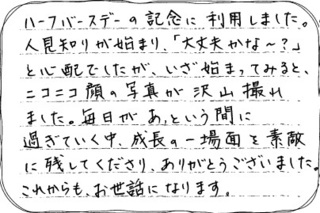 ハーフバースデーの記念に利用しました。
人見知りが始まり、「大丈夫かな～?」
と心配でしたが、いざ始まってみると、
ニコニコ顔の写真が沢山撮れ
ました。毎日があっという間に
過ぎていく中、成長の一場面を素敵
に残してくださり、ありがとうございました。
これからも、お世話になります。